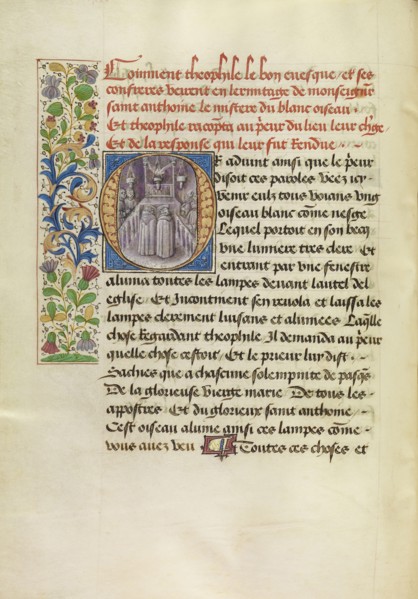 Comment theophile le bon euesque, et ses
confreres veirent en lermitage de monseigneur
saint anthoine le mistere du blanc oiseau.
Et theophile raconpta au prieur du lieu leur chīge
Et de la response qui leur fut Rendue.
Et aduint ainsi que le prieur
disoit ces paroles veez icy
venir eulz tous voians vng
oiseau blanc cōme neige
Lequel portoit en son becq
vne lumiere tres clere Et
entrant par vne fenestre
aluma toutes les lampes deuant lautel de
eglise Et Incontinent senreuola et laissa les
lampes clerement luisans et alumees Laq̄lle
chose Regardant theophile Il demanda au prieur
quelle chose cestoit, Et le prieur luy dist.
Sachies que a chascune solempnite de pasq̄s
De la glorieuse vierge marie De tous les
appostres Et du glorieux saint anthoine
Cest oiseau alume ainsi ces lampes cōme
vous auez veu Toutes ces choses et